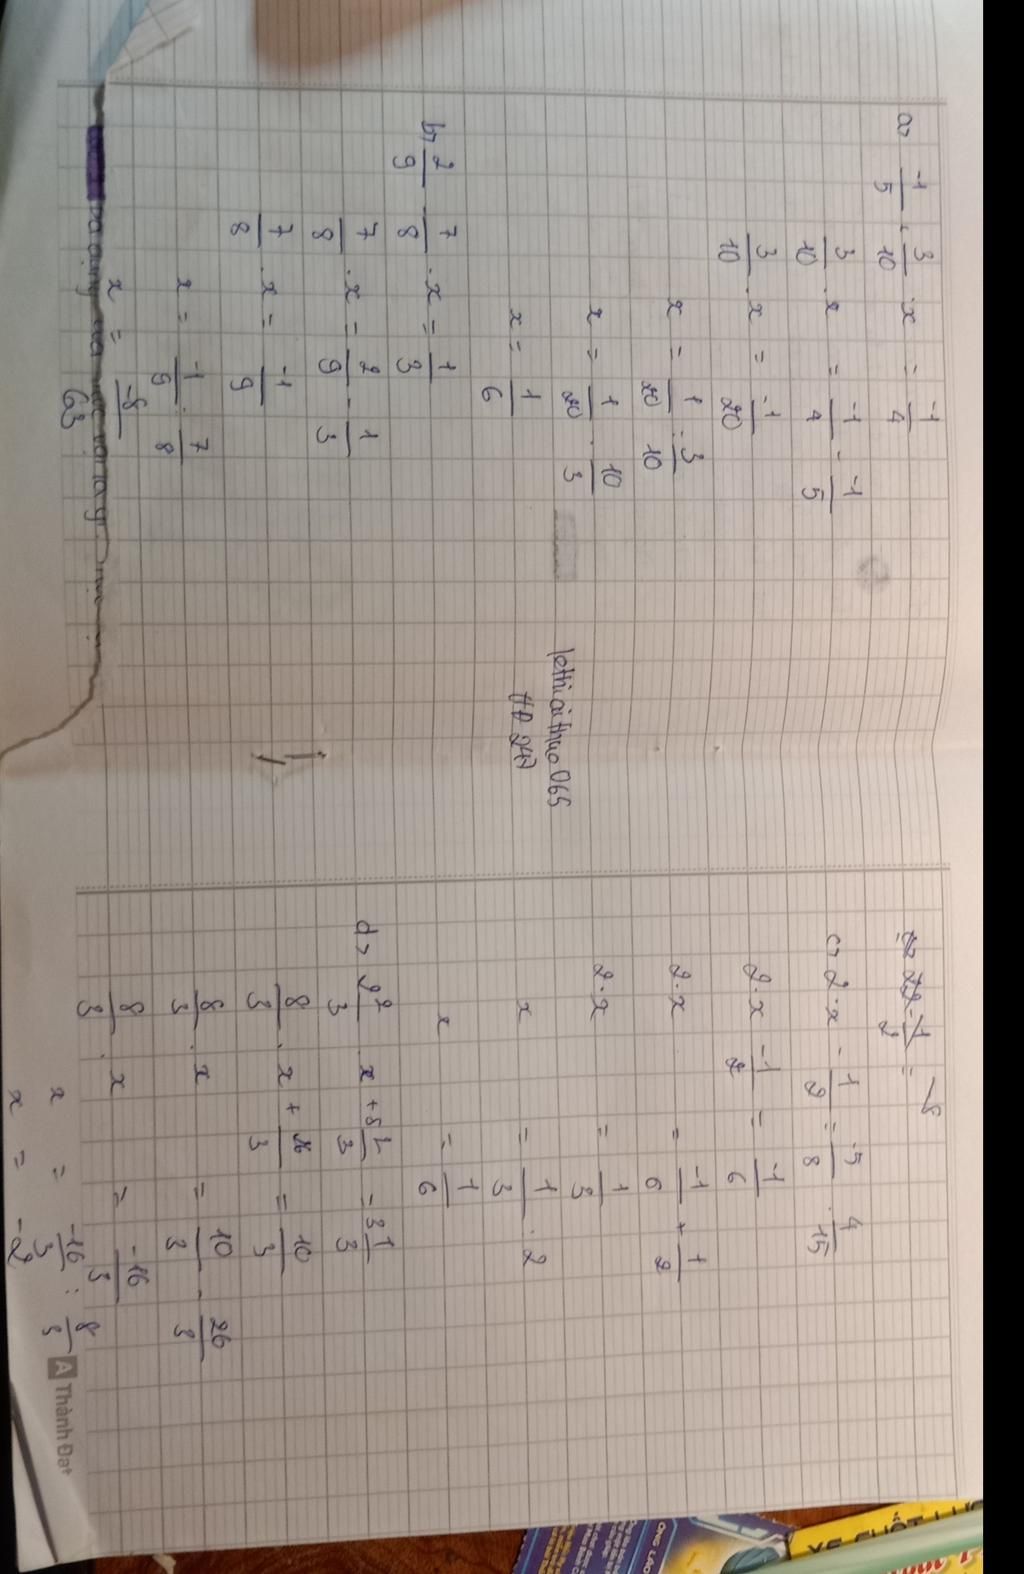 a> -1/5 . 3/10 . x = -1/4
3/10 . x = -1/4 - -1/5
3/10 . x = -1/20
x = 1/20 : 3/10
x = 1/20 . 10/3
x = 1/6
b> 2/9 - 7/8 . x = 1/3
7/8 . x = 2/9 - 1/3
7/8 . x = -1/9
x = -1/9 : 7/8
x = -8/63
HĐ 247
c> 2.x - 1/2 = -5/8 . 4/15
2.x - 1/2 = -1/6
2.x = -1/6 + 1/2
2.x = 1/3
x = 1/3 : 2
x = 1/6
d> 2 2/3 x + 8 2/3 = 3 1/3
8/3 . x + 26/3 = 10/3
8/3 . x = 10/3 - 26/3
8/3 . x = -16/3
x = -16/3 : 8/3
x = -2
A Thành Đạt